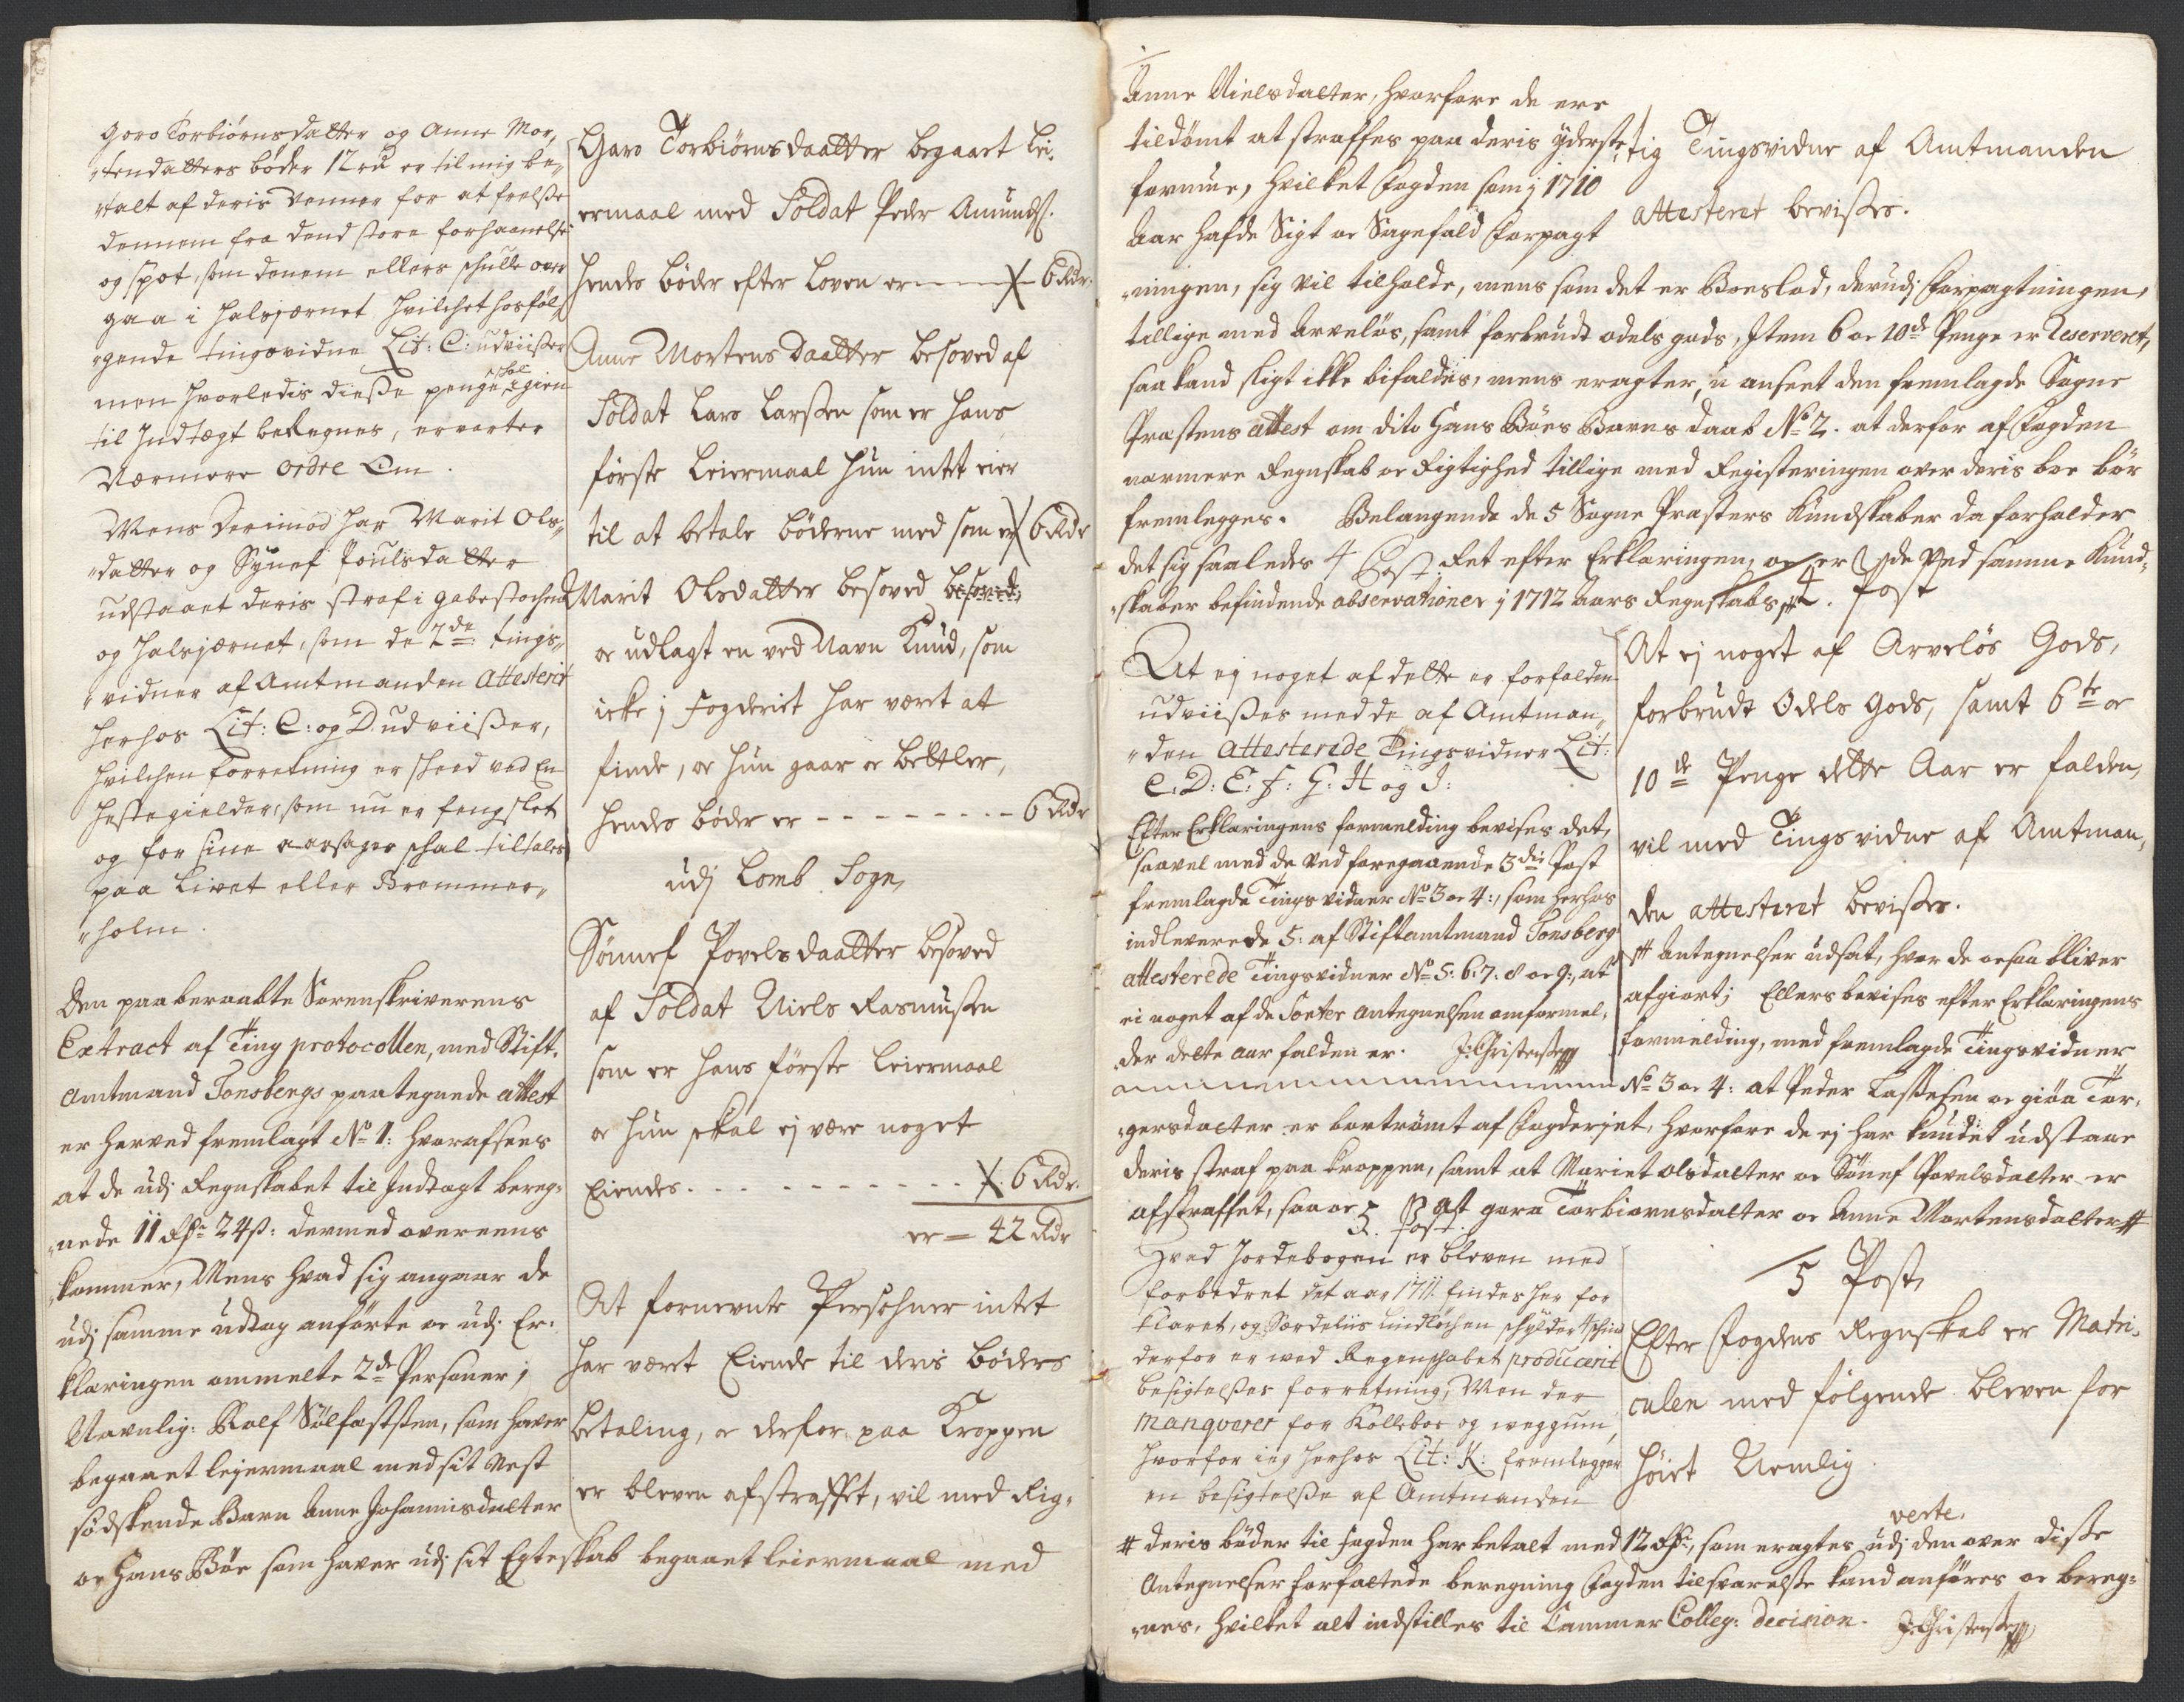 Goro Torbiørnsdatter og Anne Mor¬
tendatters bøder 12 rd er til mig be¬
talt af deris Venner for at frelsse
dennem fra dend store forhaanelse
og spot, som denem ellers skulle over
gaa i Halsjærnet hvilchet hosføl¬
gende tingsvidne Lit: C: udviisser
men hvorledis diesse penge schal igien
til Indtægt beregnes, erverter
Nærmere ordre Om.
Mens derimod har Marit Ols¬
datter og Synef Poulsdatter
udstaaet deris straf i gabestochen
og halsjærnet, som de 2de tings¬
vidner af Amtmanden Attesterit
herhos Lit: C: og D udviisser,
hvilchen forretning er skeed ved En
Hestegielder, som nu er fengslet
og for sine aarsager schal tiltales
paa Livet eller Bremmer¬
holm.
Den paaberaabte Sorenskriverens
Extract af Ting protocollen, med Stift.
Amtmand Tonsbergs paategnede attest
er herved fremlagt No 1: hvoraf sees
at de udj Regnskabet til Indtægt bereg¬
nede 11 Rdr 24 s: dermed overeens
kommer, Mens hvad sig angaar de
udj samme udtog anførte oc udj Er¬
klæringen ommelte 2de Personer;
Navnlig: Rolf Sølfastssen, som haver
begaaet lejermaal med sit Nest
södskende Barn Anne Johannisdatter
oc Hans Böe som haver udj sit Egteskab begaaet leiermaal med
Garo Torbiörnsdaatter begaaet lei¬
ermaal med Soldat Peder Amunds.
hendes bøder efter Loven er - - - X 6 Rdr.
Anne Mortensdaatter besoved af
Soldat Lars Larssen som er hans
første Leiermaal hun intet eier
til at betale bøderne med som er X 6 Rdr
Marit Olsdatter besoved besoved,
oc udlagt en ved Navn Knud, som
icke j Fogderiet har været at
finde, oc hun gaar oc bettler,
hendes bøder er - - - - - - - - 6 Rdr
udj Lomb Sogn,
Sönnef Povelsdaatter besoved
af Soldat Niels Rasmussen
som er hans første Leiermaal
oc hun skal ej være noget
Eiendes - - - - - - - - - - X 6 Rdr.
er = 42 Rdr
At fornevnte Persohner intet
har været Eiende til deris bøders
betaling, oc derfor paa Kroppen
er bleven afstraffet, vil med Rig¬
Anne Nielsdatter, hvorfore de ere
tildømt at straffes paa deris yderste
formue, hvilket Fogden som j 1710
Aar hafde Sigt oc Sagefald Forpagt
ningen, sig vil tilholde, mens som det er Boeslod, derudj Forpagtningen,
tillige med Arvelös, samt forbrudt odels gods, Item 6 oc 10de Penge er Reserveret,
saa kand sligt ikke bifaldes, mens eragter, u anseet den fremlagde Sogne
Præstens attest om dito Hans Böes Barns daab No 2. at derfor af Fogden
nærmere Regnskab oc Rigtighed tillige med Registeringen over deris boe bör
fremlegges. Belangende de 5 Sogne Præsters Kundskaber da forholder
det sig saaledes Ret efter Erklæringen, oc er de ved samme Kund¬
skaber befindende observationer j 1712 Aars Regnskabs #
tig Tingsvidne af Amtmanden
attesteret bevisses.
4. Post
At ej noget af dette er forfalden
udviisses med de af Amtman¬
den Attesterede Tingsvidner Lit:
C: D: E: F: G: H og I:
Efter Erklæringens formelding bevises det,
saavel med de ved foregaaende 3die Post
fremlagde Tings vidner No 3 oc 4:, som herhos
indleverede 5: af Stiftamtmand Tonsberg
attesterede Tingsvidner No 5: 6: 7: 8 oc 9:, at
ei noget af de Sorter antegnelsen omformel¬
der dette Aar falden er. J: Christensse
At ej noget af Arvelös Gods,
forbrudt Odels Gods, samt 6te oc
10de Penge dette Aar er falden,
vil med Tingsvidne af Amtman¬
den attesteret bevisses.
# Antegnelser udsat, hvor de ocsaa bliver
afgiort; Ellers bevises efter Erklæringens
formelding, med fremlagde Tingsvidner
No 3 oc 4: at Peder Lassesen oc giöa Tor¬
gersdatter er bortrömt af Fogderjet, hvorfore de ej har kundet udstaae
deris straf paa kroppen, samt at Mariet olsdatter oc Sönef Povelsdatter er
afstraffet, saa oc at gora Torbiörnsdatter oc Anne Mortensdatter #
5. Post.
Hvad Jordebogen er bleven med
forbedret det aar 1711. findes her for
klaret, og Særdeliis Lindløchen schylder 4 schin
derfor er med Regenschabet producerit
besigtelsses forretning, Men der
manqverer for Kollebøe og weggum,
hvorfor ieg herhos Lit: K: fremlegger
en besigtelsse af Amtmanden
5 Post,
Efter Fogdens Regnskab er Matri¬
culen med følgende bleven for
høiet Nemlig
verte.
# deris bøder til fogden har betalt med 12 Rdr, som eragtes udj den over disse
Antegnelser forfattede beregning Fogden tilsvarelsse kand anføres oc bereg¬
nes, hvilket alt indstilles til Cammer Colleg: decision. J: Christensse